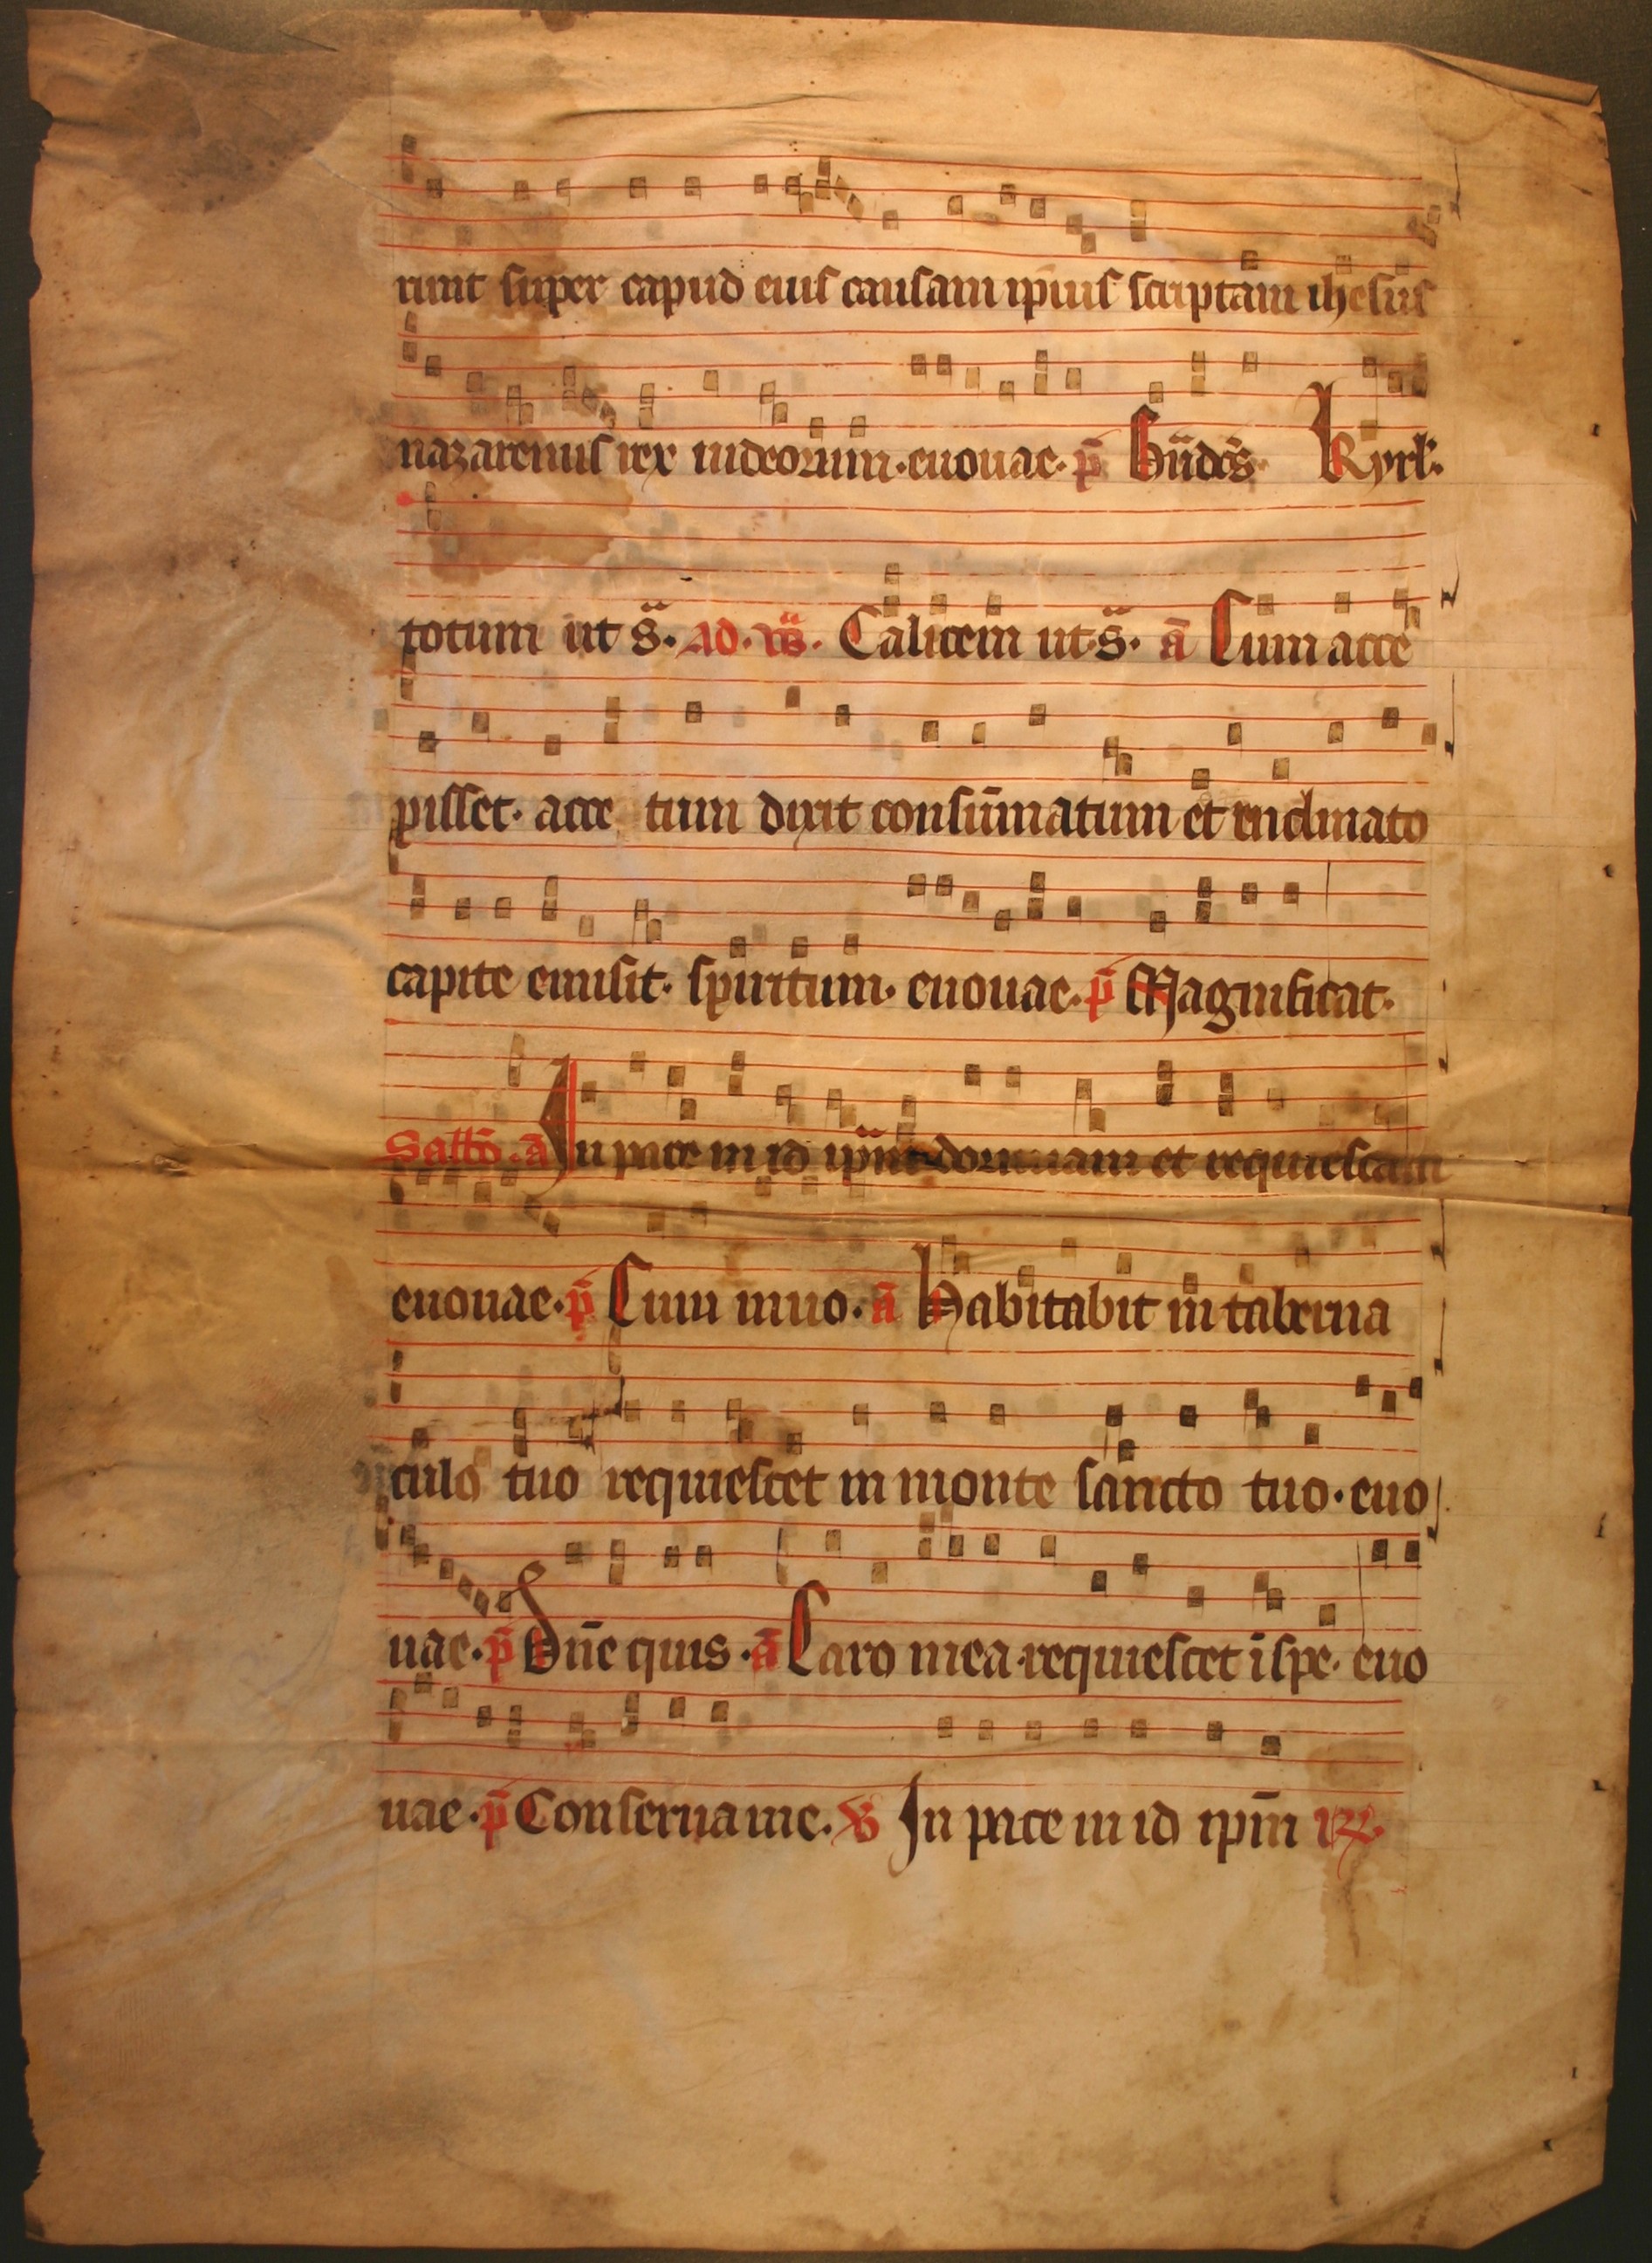 runt super capud eius causam ipius scriptam ihesus
nazarenus rex iudeorum. euouae. p̄ Bn̄dc̄s Kyrl'.
totum ut s̄. Ad. Calicem ut s̄. ā Cum acce
pisset. ace tum dixit consūmatum et inclinato
capite emisit. spiritum. euouae. p̄ Magnificat.
Sabb̄o. ā In pace in id ip̄m dormiam et requiescam
euouae. p̄ Cum inuo. ā Habitabit in taberna
culo tuo requiescet in monte sancto tuo. euo
uae. p̄ Dn̄e quis. ā Caro mea requiescet ī spe. euo
uae. p̄ Conserua me. V In pace in id ipm̄ R.